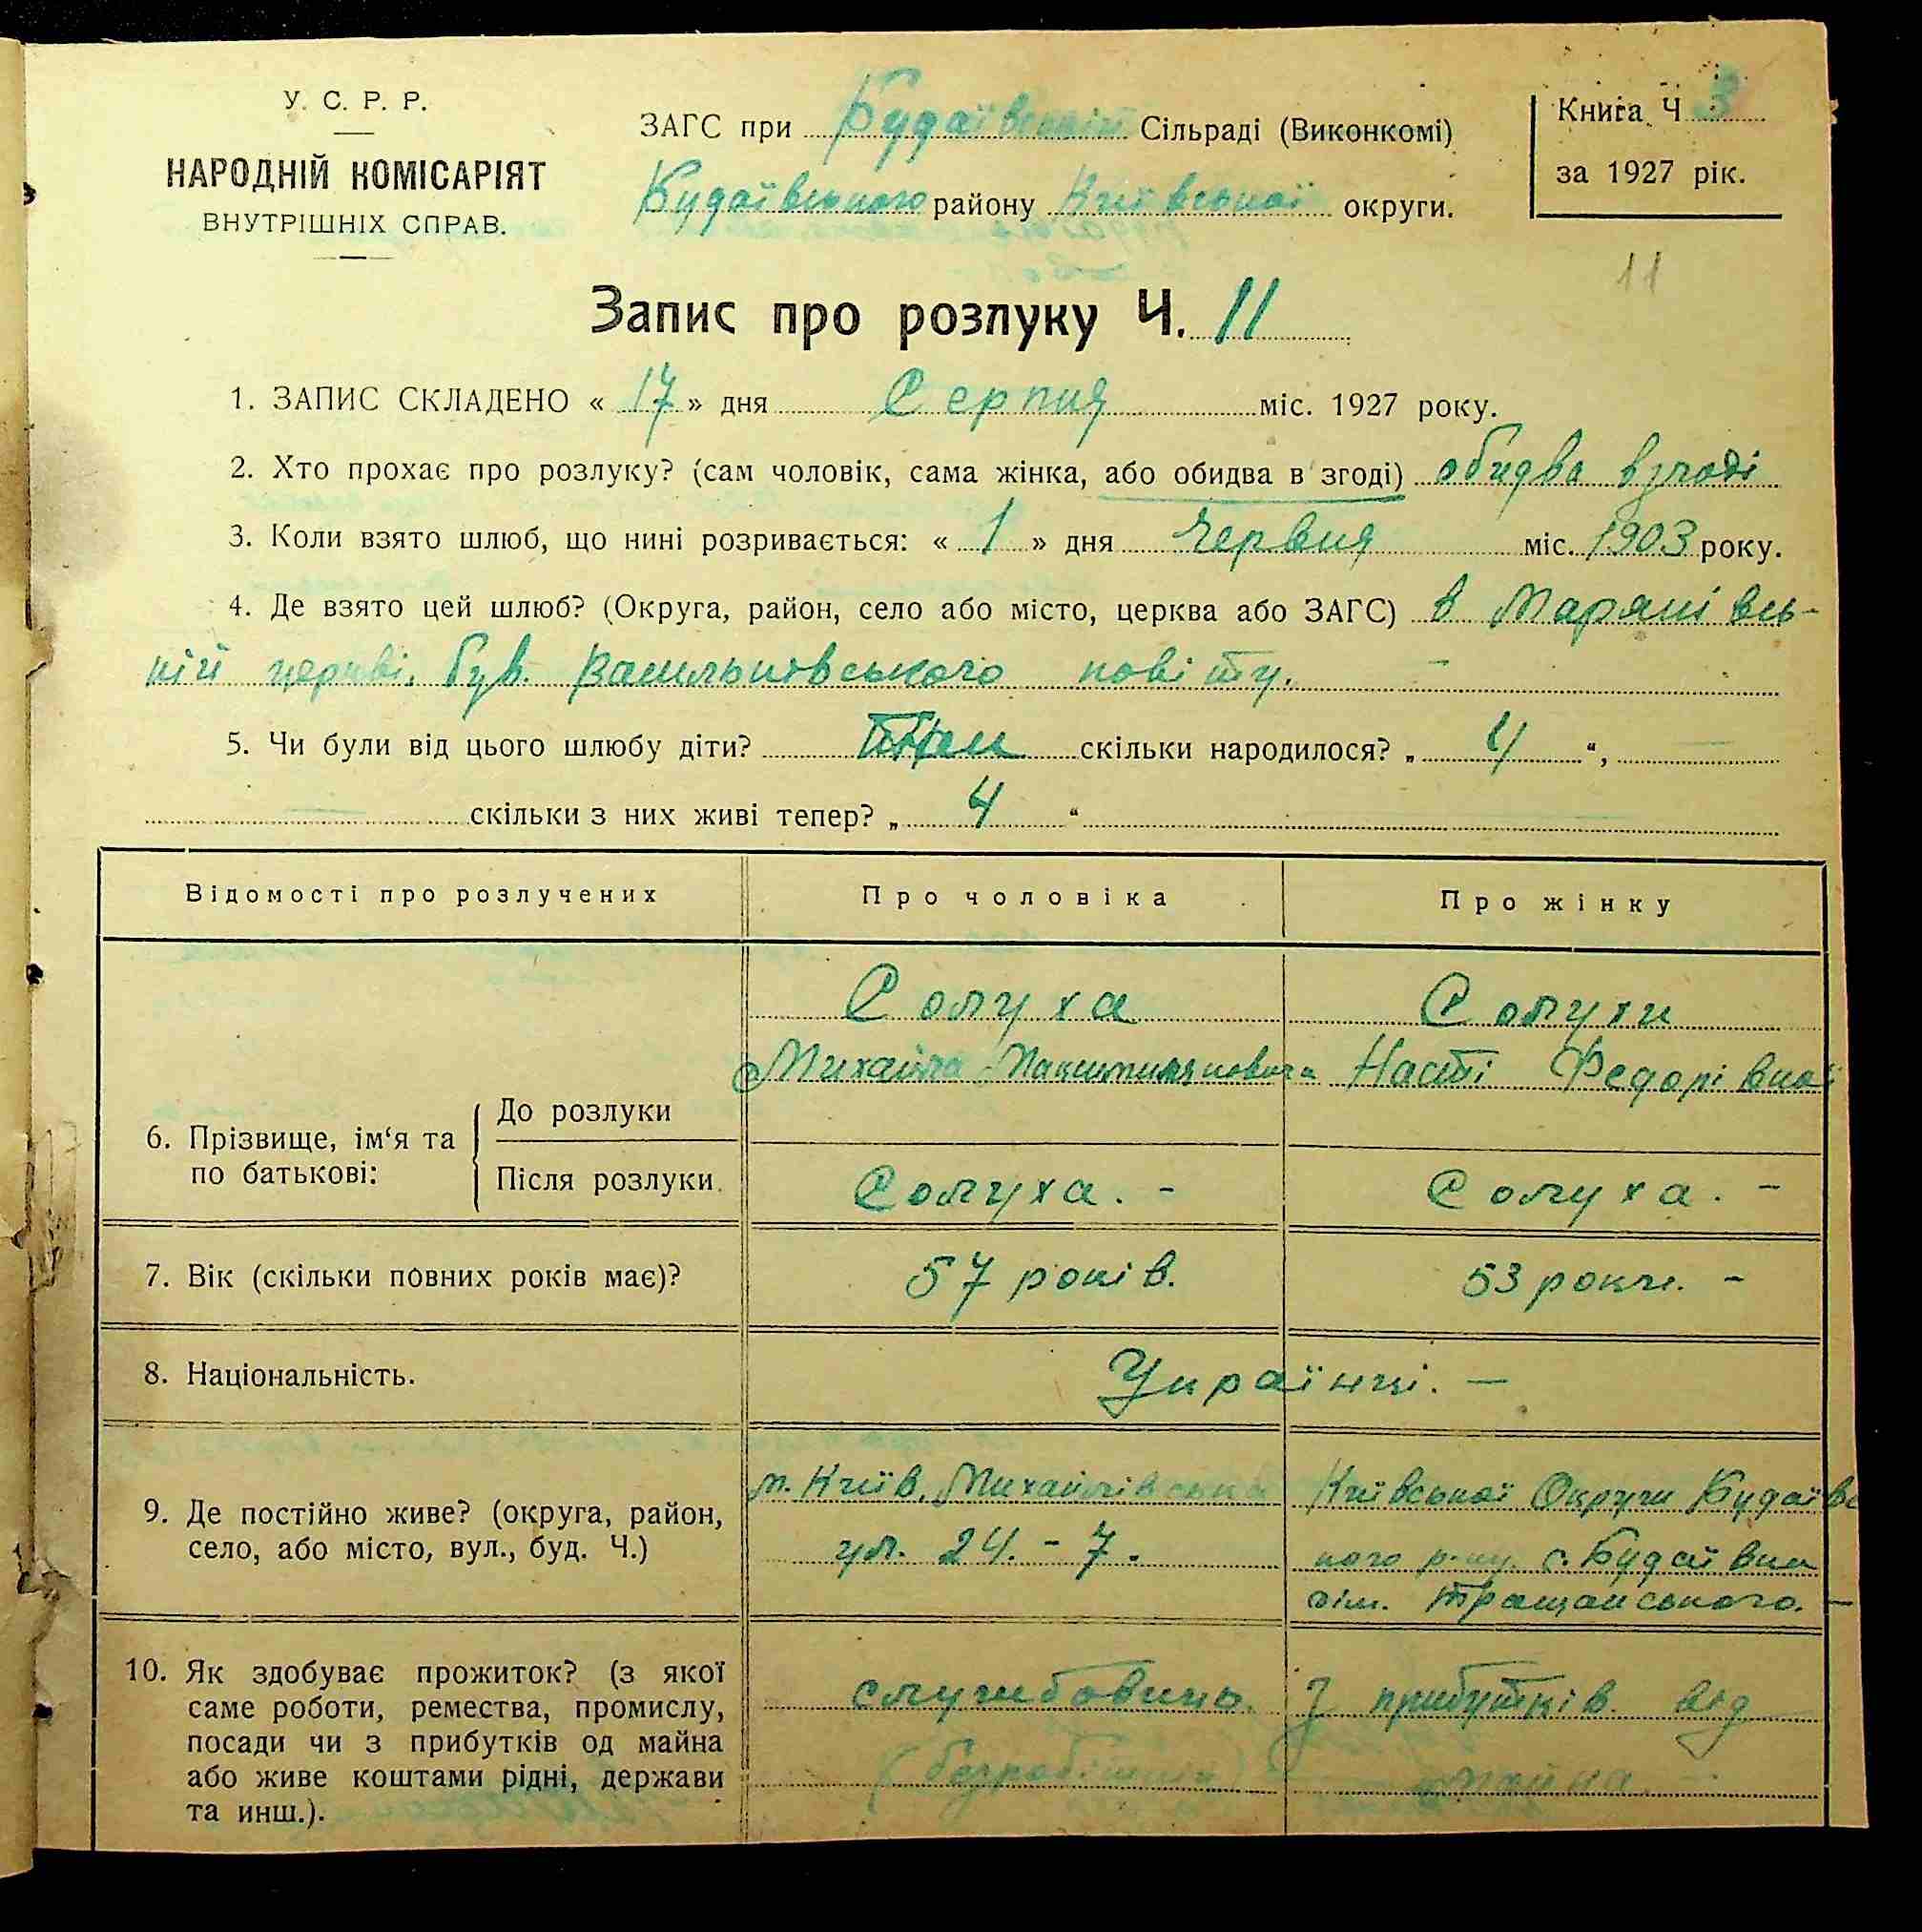 У. С. Р. Р.
НАРОДНІЙ КОМІСАРІЯТ
ВНУТРІШНІХ СПРАВ.
ЗАГС при Будаївській Сільраді (Виконкомі)
Будаївського району Київської округи.
Книга Ч 3
за 1927 рік.
11
Запис про розлуку Ч. 11
1. ЗАПИС СКЛАДЕНО « 17 » дня Серпня міс. 1927 року.
2. Хто прохає про розлуку? (сам чоловік, сама жінка, або обидва в згоді) обидва в згоді
3. Коли взято шлюб, що нині розривається: « 1 » дня Червня міс. 1903 року.
4. Де взято цей шлюб? (Округа, район, село або місто, церква або ЗАГС) в Мар'янівсь-
кій церкві, був. Васильківського повіту. -
5. Чи були від цього шлюбу діти? скільки народилося? „ 4 “,
скільки з них живі тепер? „ 4 “
Відомості про розлучених Про чоловіка Про жінку
Солуха Солухи
Михайла Максимиляновича Насті Федорівної
6. Прізвище, ім‘я та по батькові: До розлуки
Після розлуки Солуха. - Солуха. -
7. Вік (скільки повних років має)? 57 років. 53 роки. -
8. Національність. Українці. —
9. Де постійно живе? (округа, район, село, або місто, вул., буд. Ч.)
м. Київ, Михайлівська
ул. 24. - 7.
Київської Округи Будаївс
кого р-ну. с. Будаївки
10. Як здобуває прожиток? (з якої
саме роботи, ремества, промислу,
посади чи з прибутків од майна
або живе коштами рідні, держави
та инш.).
службовець.
(безробітний)
З прибутків від
майна. -